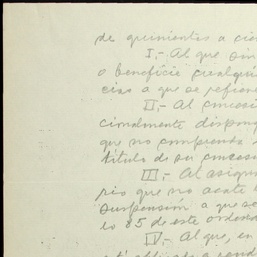 de quinientos a cien
I.- Al que sin
o beneficie cualqui
cias a que se refiere
II.- Al concesi
cionalmente dispong
que no comprenda s
título de su concesi
III.- Al asigna
pio que no acate l
suspensión a que se
lo 85 de este ordena
IV.- Al que, en